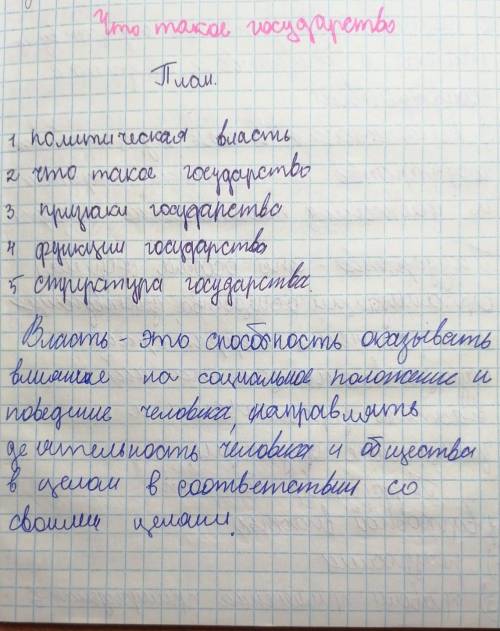 Что такое государство
План.
1 политическая власть
2 что такое государство
3 признаки государства
4 функции государства
5 структура государства.
Власть - это способность оказывать
влияние на социальное положение и
поведение человека, направлять
деятельность человека и общества
в целом в соответствии со
своими целями.